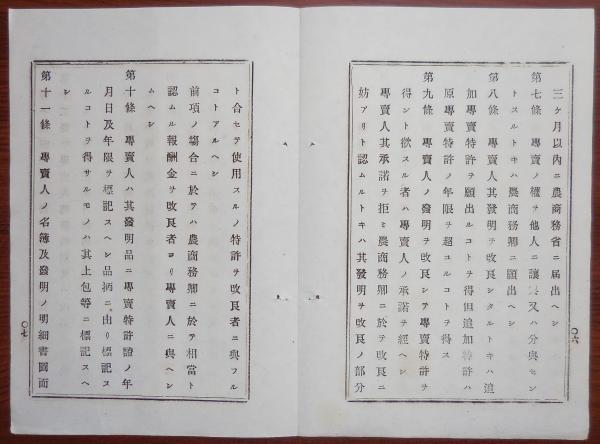 三ケ月以内ニ農商務省ニ届出ヘシ
第七條 專賣ノ權ヲ他人ニ讓與又ハ分與セン
トスルトキハ農商務卿ニ願出ヘシ
第八條 專賣人其發明ヲ改良シタルトキハ追
加專賣特許ヲ願出ルコトヲ得但追加特許ハ
原專賣特許ノ年限ヲ超ユルコトヲ得ス
第九條 專賣人ノ發明ヲ改良シテ專賣特許ヲ
得ント欲スル者ハ專賣人ノ承諾ヲ經ヘシ
專賣人其承諾ヲ拒ミ農商務卿ニ於テ改良ニ
妨アリト認ムルトキハ其發明ヲ改良ノ部分
〇六
ト合セテ使用スルノ特許ヲ改良者ニ與フル
コトアルヘシ
前項ノ塲合ニ於テハ農商務卿ニ於テ相當ト
認ムル報酬金ヲ改良者ヨリ專賣人ニ與ヘシ
ムヘシ
第十條 專賣人ハ其發明品ニ專賣特許證ノ年
月日及年限ヲ標記スヘシ品柄ニ由リ標記ス
ルコトヲ得サルモノハ其上包等ニ標記スヘ
シ
第十一條 專賣人ノ名簿及發明ノ明細書圖面
〇七